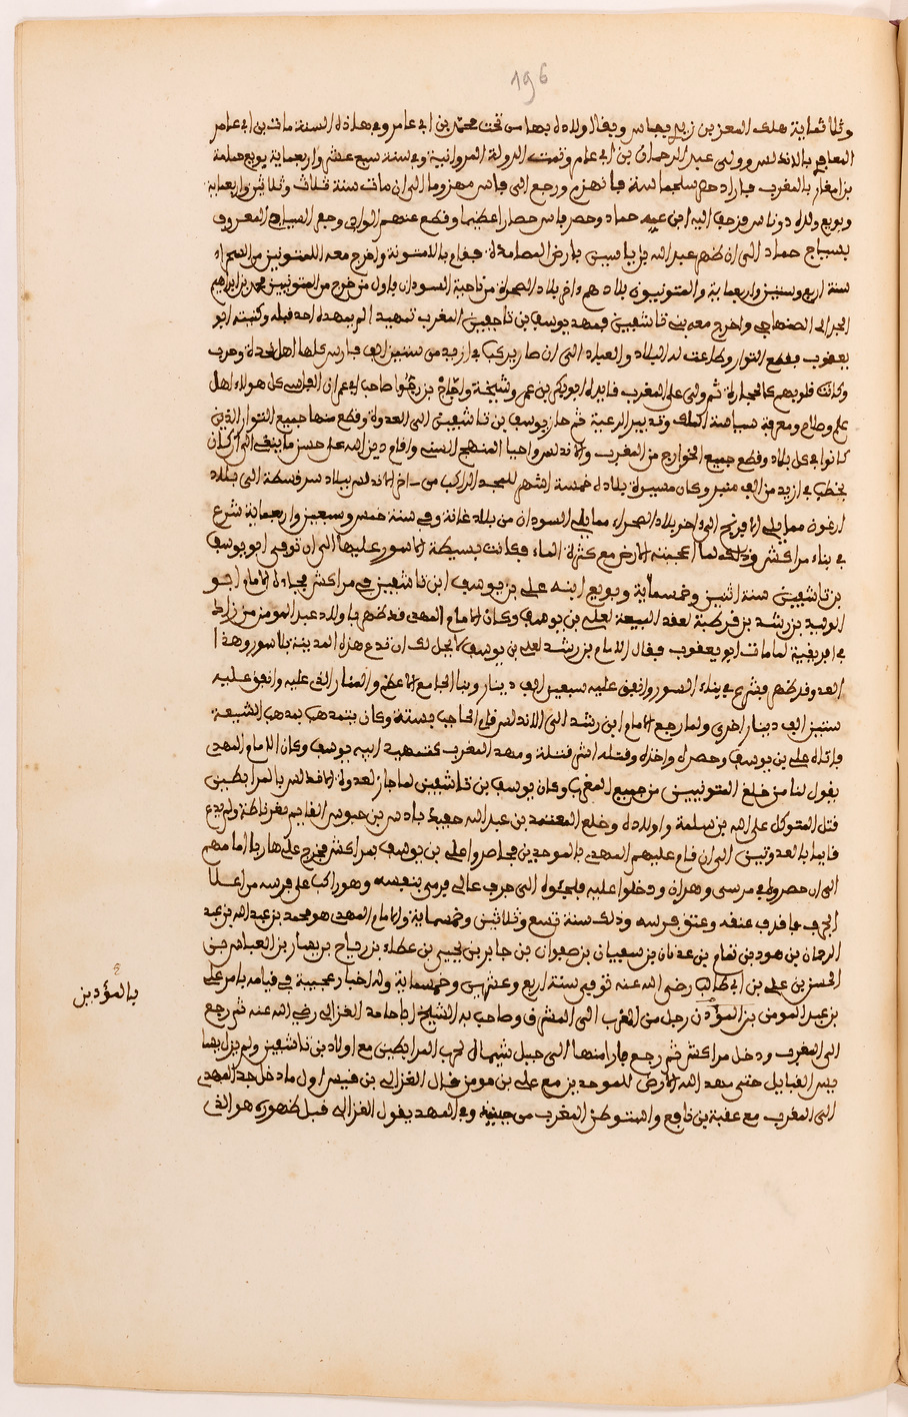 196
وثلاثماية هلك المعز بن زيري بفاس ويقال اولاده بها من تحت محمد بن ابي عامر وفي هاذه السنة مات بن ابي عامر
المعافر بالاندلس وولى عبد الرحمان بن ابي عامر وتمت الدولة المروانية وفي سنة سبع عشر واربعماية بويع حمامة
بالمغرب فاراد سلجماسة فانهزم ورجع الى فاس مهزوما الى ان مات سنة ثلاث وثلاثين واربعماية
وبويع ولده دوناس فزحف اليه ابن عمه حماد وحصر فاس حصارا عظيما وقطع عنهم الوادي وجعل السياج المعروف
بسياج حماد الى ان ظهر عبد الله بن ياسين بارض المصامدة فقام بالامتونة واخرج معه اللمتونيين من الصحراء
سنة اربع وستين واربعماية والمتونيون بلادهم واخر بلاد الصحراء من ناحية السودان واول من خرج من المتونيين محمد بن ابراهيم
الصنهاجي واخرج معه بني تاشفين فمهد يوسف بن تاجفين المغرب تمهيد الم يمهده احد قبله وكنيته ابو
يعقوب فقطع الثوار وطاعت له البلاد والعباد الى ان صار يركب في ازيد من ستين الف فارس كلها اهل نجدة وحرب
وكانت قلوبهم كالحجارة ثم ولى على المغرب قايده ابوبكر بن عمر وشيخه صاحب ابي عمران الفاسي كل هولاء اهل
علم وصلاح ومعرفة سياسة الملك وتدبير الرعية ثم جاز يوسف بن تاشفين الى العدوة وقطع منها جميع الثوار الذين
كانوا في كل بلاد وقطع جميع الخوارج من المغرب والاندلس واحيا المنهج السني واقام دين الله على حسن ما ينبغي الى ان كان
يخطب في ازيد من الف منبر وكان مسيرة بلاده خمسة اشهر للمجد الراكب من اخر الاندلس ببلاد سرقسطة الى بلاد
ارغون مما يلي الافرنج الى اخر بلاد الصحراء مما يلي السودان من بلاد غانة وفي سنة خمس وسبعين واربعماية شرع
في بناء مراكش وذلك لما اعجبته الارض مع كثرة الماء فكانت بسيطة لا سور عليها الى ان توفي ابو يوسف
بن تاشفين سنة اثنين وخمسماية وبويع ابنه علي بن يوسف ابن تاشفين في مراكش فجاءه الامام ابو
الوليد بن رشد بن قرطبة لعقد البيعة لعلي بن يوسف وكان الامام المهدي قد ظهر باولاد عبد المومن من زناتة
في افريقية لما مات ابو يعقوب فقال الامام بن رشد لعلي بن يوسف لا يحل لك ان تدع هذه المدينة بلا سور وهذا
العدو قد ظهر فشرع في بناء السور وانفق عليه سبعين الف دينار وبنا الجامع الاعظم والمنار الذي عليه وانفق عليه
ستين الف دينار اخرى ولما رجع الامام ابن رشد الى الاندلس قام الحاجب بسبتة وكان يتمذهب بمذهب الشيعة
فاتاه علي بن يوسف وحصره واخذه وقتله اشر قتلة ومهد المغرب كتمهيد ابيه يوسف وكان الامام المهدي
يقول لنا من خلع المتونيين من جميع المغرب وكان يوسف بن تاشفين لما جاز لعدوة الاندلس بالمرابطين
قتل المتوكل على الله بن سلمة واولاده وخلع المعتمد بن عبد الله حفيد باديس بن حبوس القايم بغرناطة ولم يدع
قايما بالعدوتين الى ان قام عليهم المهدي بالموحدين فحاصروا علي بن يوسف بمراكش فخرج علي هاربا امامهم
الى ان حصروه في مرسى وهران ودخلوا عليه فلجئوه الى جرف عالي فرمى بنفسه وهو راكب على فرسه من اعلا
الجرف فاندق عنقه وعنق فرسه وذلك سنة تسع وثلاثين وخمسماية والامام المهدي هو محمد بن عبد الله بن عبد
الرحمان بن هود بن تمام بن عدنان بن سفيان بن صفوان بن جابر بن يحيى بن عطاء بن رياح بن يسار بن العباس بن
الحسن بن علي بن ابي طالب رضي الله عنه توفي سنة اربع وعشرين وخمسماية وله اخبار عجيبة في قيامه بامر علي
بن عبد المومن بن المؤذن رجل من الغرب الى المشرق وصاحب به الشيخ ابا حامد الغزالي رضي الله عنه ثم رجع
الى المغرب ودخل مراكش ثم رجع فارا منها الى جبل شيمال لحرب المرابطين مع اولاد بن تاشفين ولم يزل بها
بين القبايل حتى مهد الله الارض للموحدين مع علي بن مومن فقال الغزالي بن قيس اول ما دخل جد المهدي
الى المغرب مع عقبة بن نافع واستوطن المغرب من حينئذ وفي المهد يقول الغزالي قبل ظهوره هو الذي
بالمؤدبن